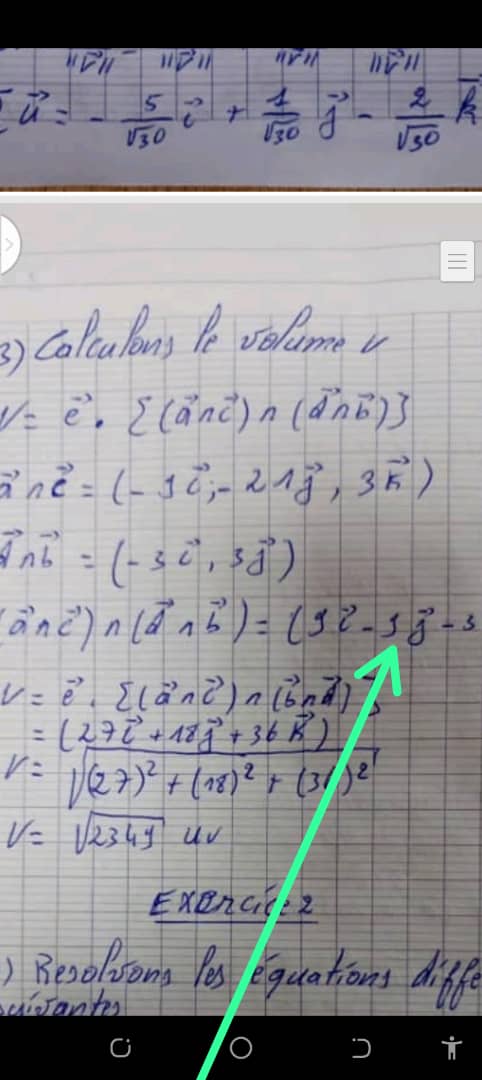 "V⃗" "V⃗" "V⃗" "V⃗"
u⃗ = - 5/√30 i⃗ + 1/√30 j⃗ - 2/√30 k⃗
3) Calculons le volume v
V= e⃗. [(a⃗ ∧ c⃗) ∧ (d⃗ ∧ b⃗)]
a⃗ ∧ c⃗ = (- 9i⃗, - 21j⃗, 3k⃗)
d⃗ ∧ b⃗ = (-3i⃗, 3j⃗)
(a⃗ ∧ c⃗) ∧ (d⃗ ∧ b⃗) = (9i⃗ - 9j⃗ - 3
V= e⃗. [(a⃗ ∧ c⃗) ∧ (b⃗ ∧ d⃗)]
= (27i⃗ + 18j⃗ + 36k⃗)
V= √(27)² + (18)² + (36)²
V= √2349 uv
EXErcice 2
) Resolvons les équations diffe
suivantes